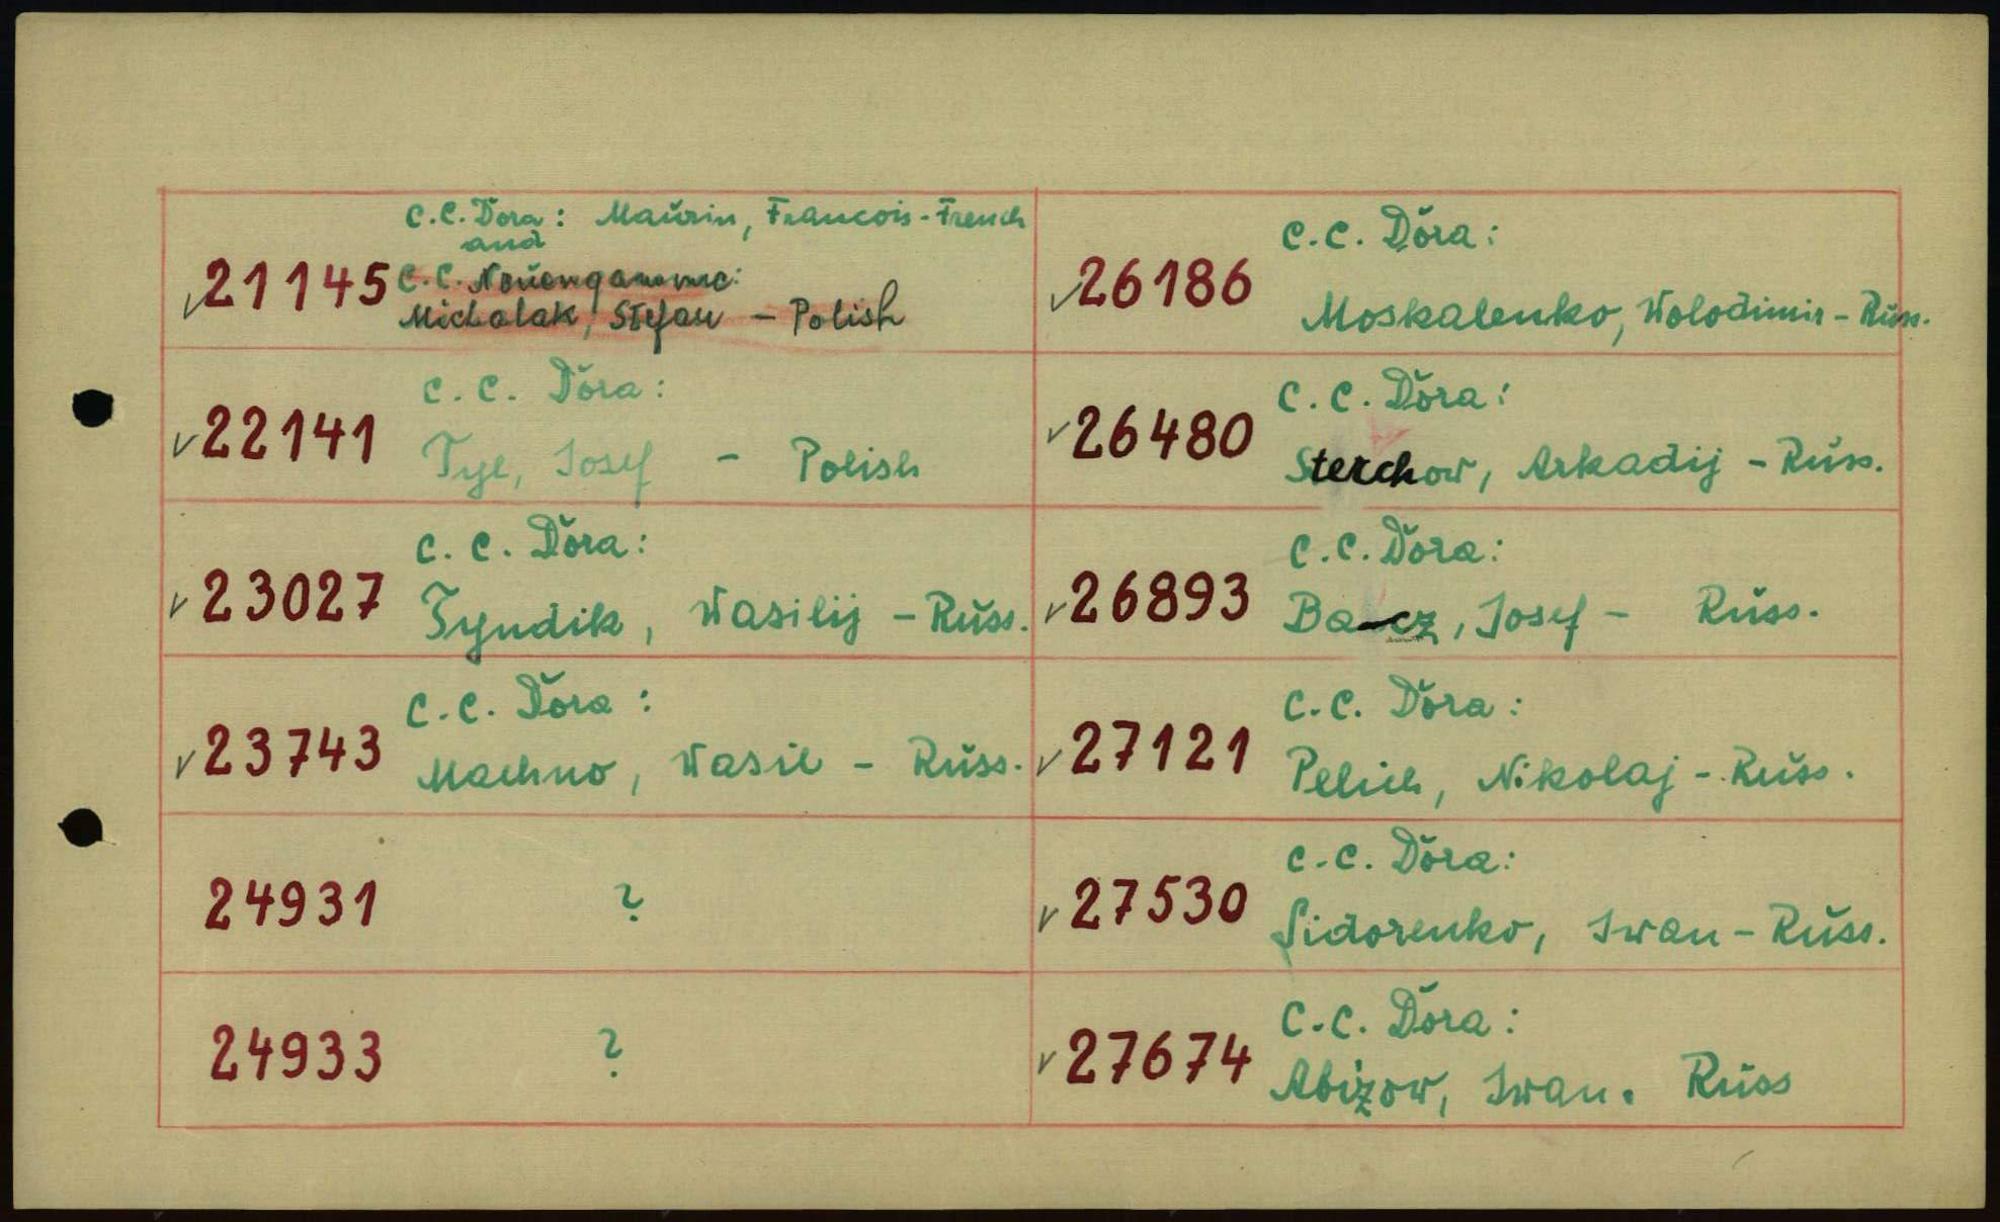 C.C. Dora: Maurin, Francois - French
and
✓21145 C.C. Neuengamme:
Michalak, Stefan - Polish
✓22141 C.C. Dora:
Tyl, Josef - Polish
✓23027 C.C. Dora:
Tyndik, Wasilij - Russ.
✓23743 C.C. Dora:
Machno, Wasil - Russ.
24931 ?
24933 ?
✓26186 C.C. Dora:
Moskalenko, Wolodimir - Russ.
✓26480 C.C. Dora:
Sterchow, Arkadij - Russ.
✓26893 C.C. Dora:
Ba-cz, Josef - Russ.
✓27121 C.C. Dora:
Pelich, Nikolaj - Russ.
✓27530 C.C. Dora:
Sidorenko, Iwan - Russ.
✓27674 C.C. Dora:
Abizow, Iwan. Russ